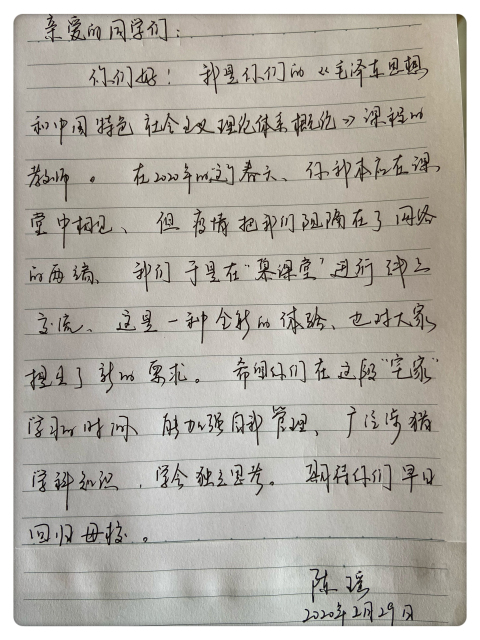 亲爱的同学们：
你们好！我是你们的《毛泽东思想
和中国特色社会主义理论体系概论》课程的
教师。在2020年的这个春天、你我本应在课
堂中相见、但疫情把我们阻隔在了网络
的两端、我们于是在“某课堂”进行线上
交流、这是一种全新的体验、也对大家
提出了新的要求。希望你们在这段“宅家”
学习的时间、能加强自我管理、广泛涉猎
学科知识，学会独立思考。期待你们早日
回归母校。
陈瑶
2020年2月29日